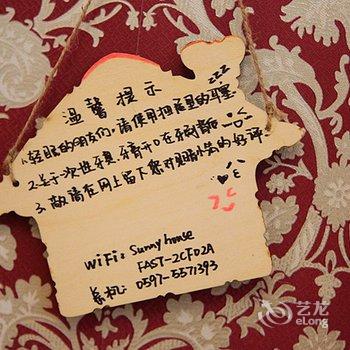 温馨提示
zzz
1.轻眠的朋友们,请使用抽屉里的耳塞
2.关于一次性牙具,牙膏开口在牙刷柄
3.敬请在网上留下您对晴舍的好评
WiFi: Sunnyhouse
FAST-2CFD2A
总机: 0597-5571393
艺龙
eLong